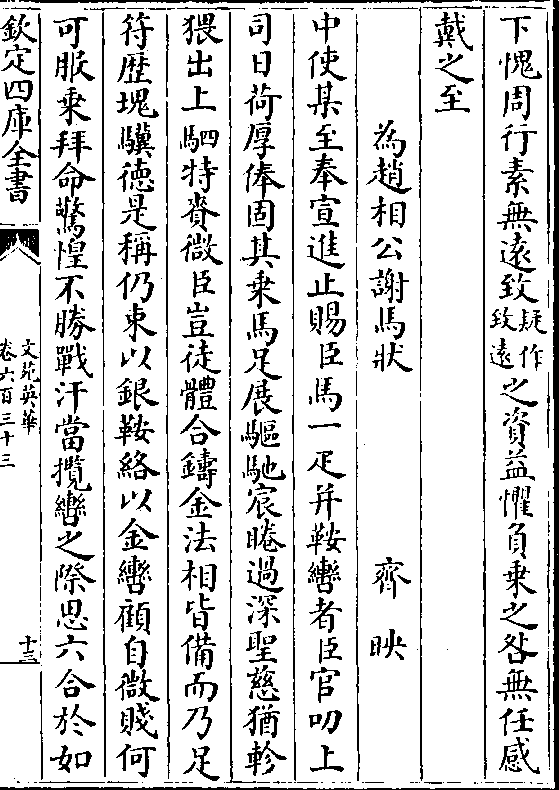 下愧周行素無遠致疑作致遠之資益懼負乘之咎無任感
戴之至
為趙相公謝馬狀　齊映
中使某至奉宣進止賜臣馬一疋并鞍轡者臣官叨上
司日荷厚俸固其乘馬足展驅馳宸睠過深聖慈猶軫
猥出上駟特賚微臣豈徒體合鑄金法相皆備而乃足
符歴塊驥德是稱仍束以銀鞍絡以金轡顧自微賤何
可服乘拜命驚惶不勝戰汗當攬轡之際思六合於如
欽定四庫全書
文苑英華
卷六百三十三
十三